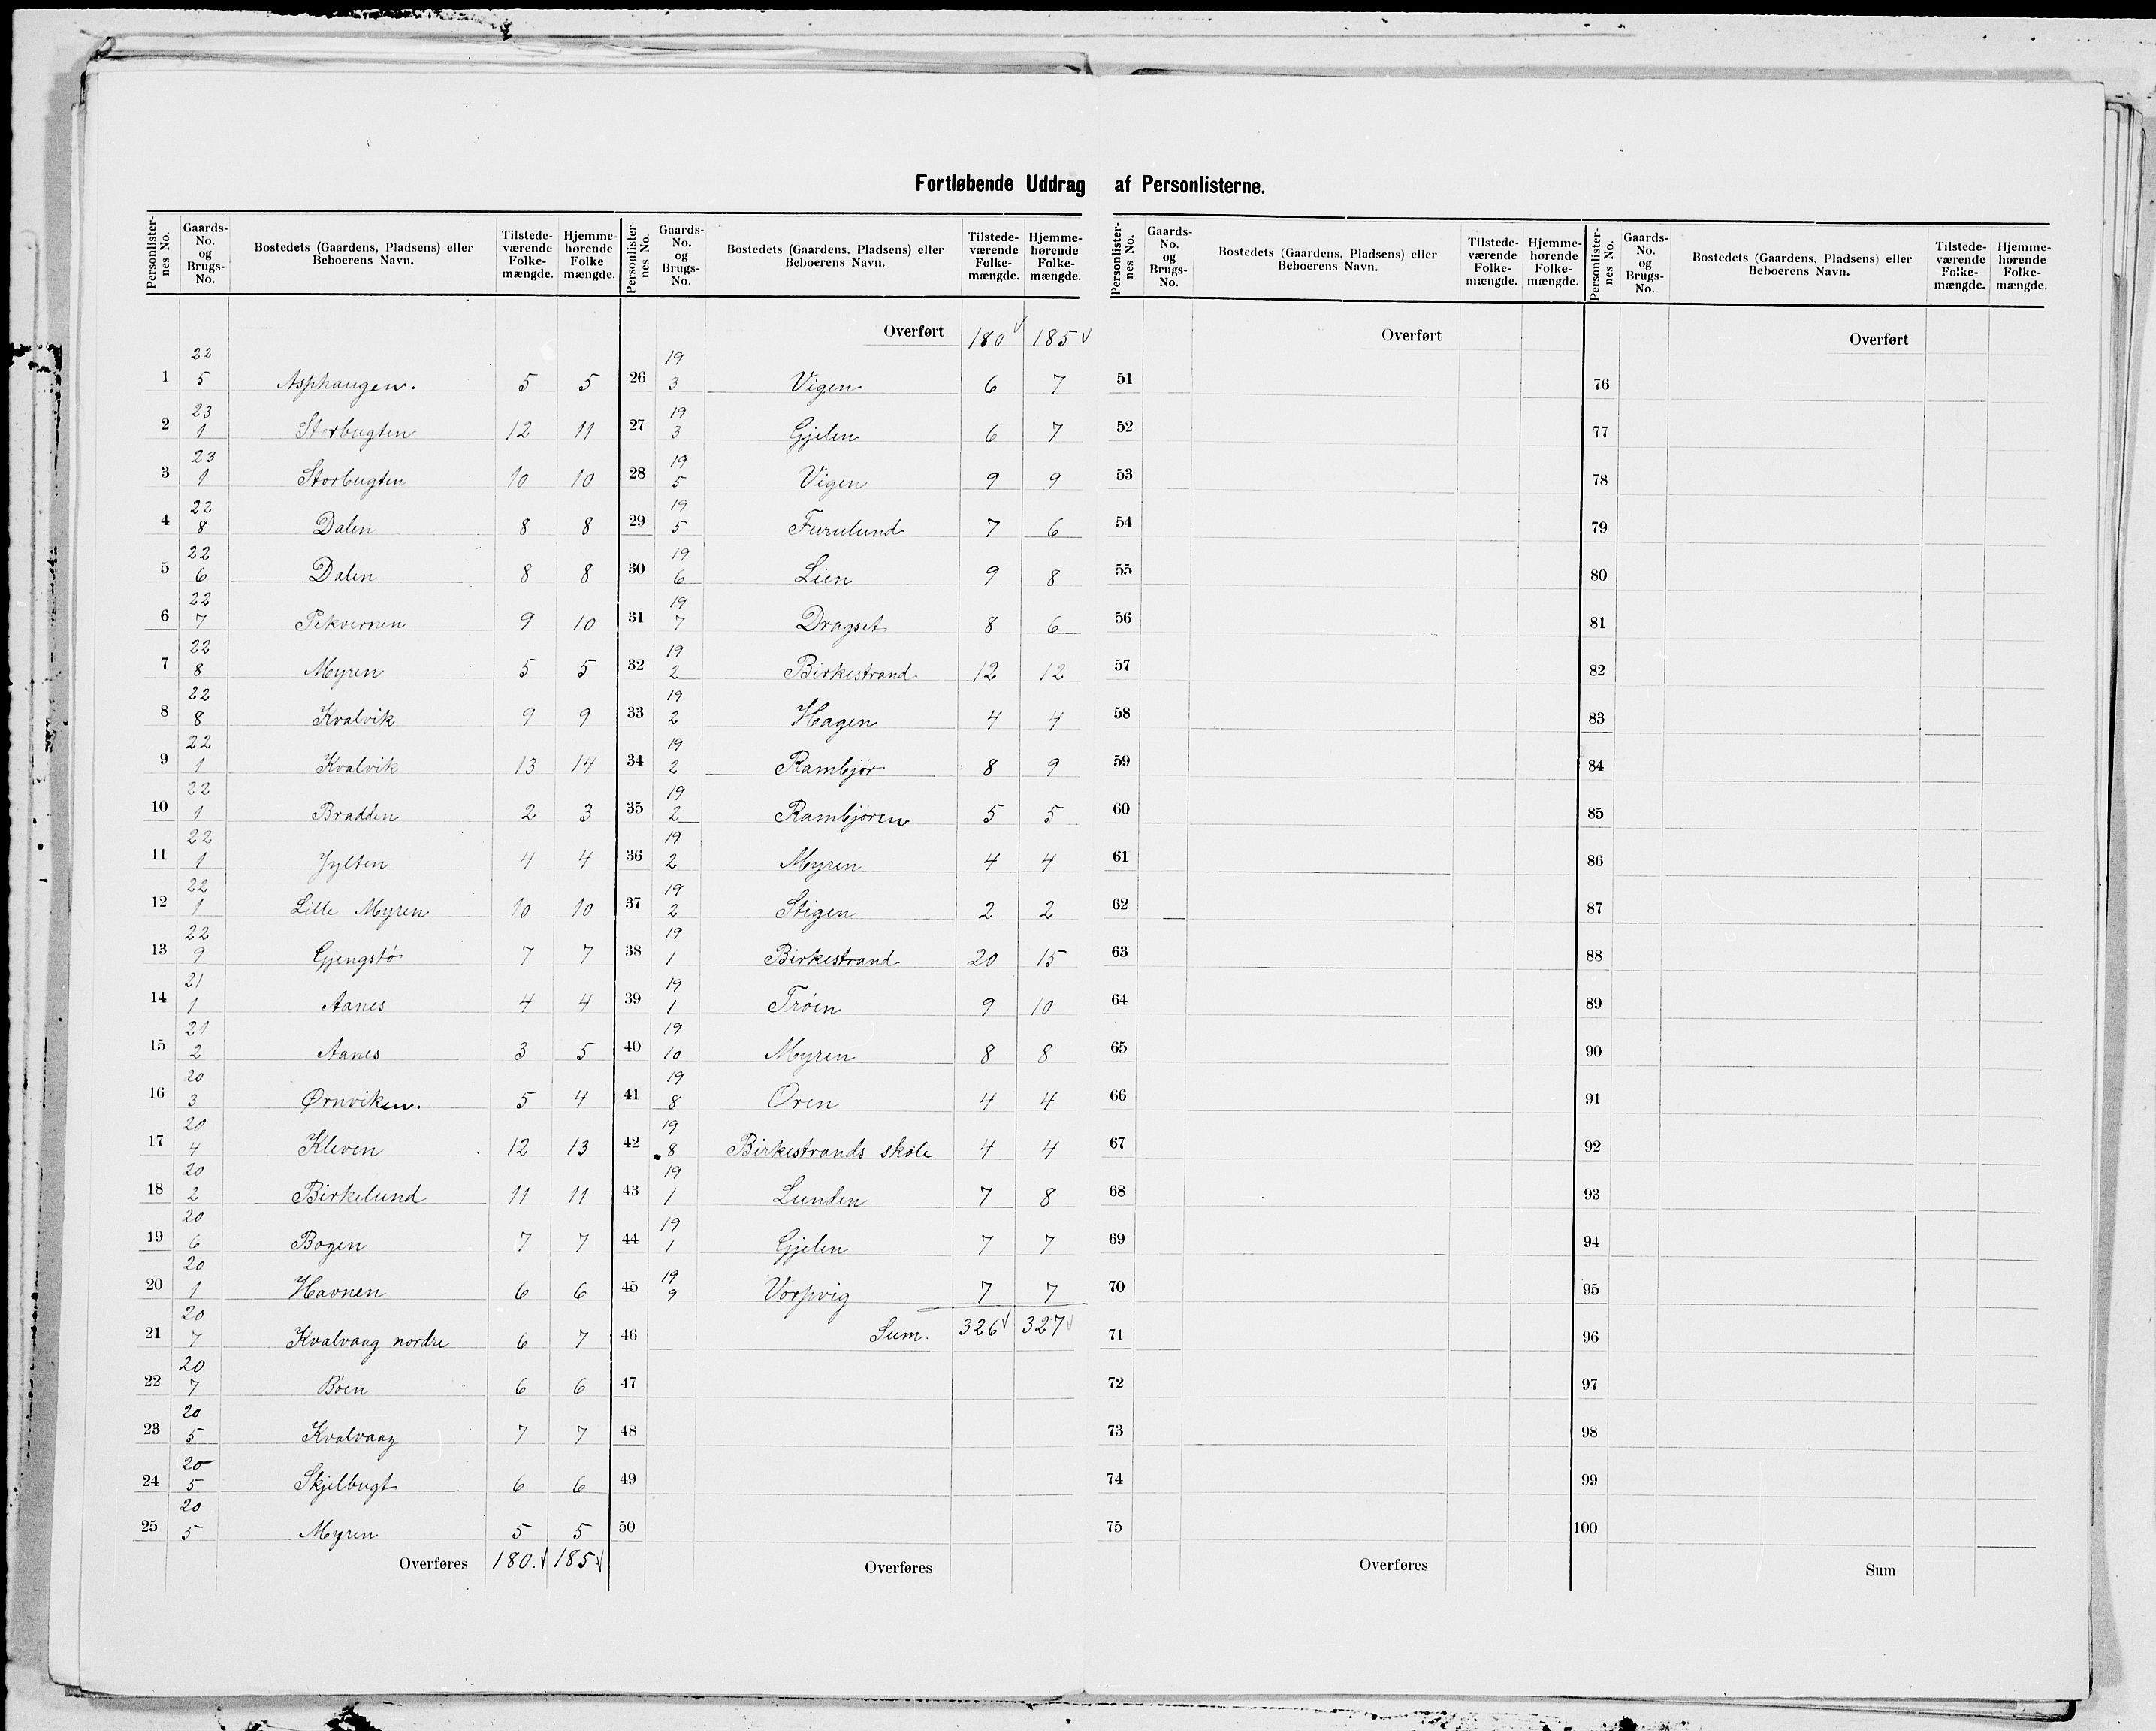 Fortløbende Uddrag af Personlisterne.
Personlister-nes No. | Gaards-No. og Brugs-No. | Bostedets (Gaardens, Pladsens) eller Beboerens Navn. | Tilstede-værende Folke-mængde. | Hjemme-hørende Folke mængde.
1 | 22 5 | Asphaugen. | 5 | 5
2 | 23 1 | Storbugten | 12 | 11
3 | 23 1 | Storbugten | 10 | 10
4 | 22 8 | Dalen | 8 | 8
5 | 22 6 | Dalen | 8 | 8
6 | 22 7 | Pekvernen | 9 | 10
7 | 22 8 | Myren | 5 | 5
8 | 22 8 | Kvalvik | 9 | 9
9 | 22 1 | Kvalvik | 13 | 14
10 | 22 1 | Bradden | 2 | 3
11 | 22 1 | Jylten | 4 | 4
12 | 22 1 | Lille Myren | 10 | 10
13 | 22 9 | Gjengstø | 7 | 7
14 | 21 1 | Aanes | 4 | 4
15 | 21 2 | Aanes | 3 | 5
16 | 20 3 | Ørnviken. | 5 | 4
17 | 20 4 | Kleven | 12 | 13
18 | 20 2 | Birkelund | 11 | 11
19 | 20 6 | Bogen | 7 | 7
20 | 20 1 | Havnen | 6 | 6
21 | 20 7 | Kvalvaag nordre | 6 | 7
22 | 20 7 | Bøen | 6 | 6
23 | 20 5 | Kvalvaag | 7 | 7
24 | 20 5 | Skjelbugt | 6 | 6
25 | 20 5 | Myren | 5 | 5
Overføres | 180. | 185
Personlister-nes No. | Gaards-No. og Brugs-No. | Bostedets (Gaardens, Pladsens) eller Beboerens Navn. | Tilstede-værende Folke-mængde. | Hjemme-hørende Folke-mængde.
Overført | 180 | 185
26 | 19 3 | Vigen | 6 | 7
27 | 19 3 | Gjelen | 6 | 7
28 | 19 5 | Vigen | 9 | 9
29 | 19 5 | Furulund | 7 | 6
30 | 19 6 | Lien | 9 | 8
31 | 19 7 | Dragset | 8 | 6
32 | 19 2 | Birkestrand | 12 | 12
33 | 19 2 | Hagen | 4 | 4
34 | 19 2 | Rambjør | 8 | 9
35 | 19 2 | Rambjøren | 5 | 5
36 | 19 2 | Myren | 4 | 4
37 | 19 2 | Stigen | 2 | 2
38 | 19 1 | Birkestrand | 20 | 15
39 | 19 1 | Trøen | 9 | 10
40 | 19 10 | Myren | 8 | 8
41 | 19 8 | Oren | 4 | 4
42 | 19 8 | Birkestrands skole | 4 | 4
43 | 19 1 | Lunden | 7 | 8
44 | 19 1 | Gjelen | 7 | 7
45 | 19 9 | Vorpvig | 7 | 7
46 | Sum. | 326 | 327
47
48
49
50
Overføres
Personlister-nes No. | Gaards-No. og Brugs-No. | Bostedets (Gaardens, Pladsens) eller Beboerens Navn. | Tilstede-værende Folke-mængde. | Hjemme-hørende Folke-mængde.
Overført
51
52
53
54
55
56
57
58
59
60
61
62
63
64
65
66
67
68
69
70
71
72
73
74
75
Overføres
Personlister-nes No. | Gaards-No. og Brugs-No. | Bostedets (Gaardens, Pladsens) eller Beboerens Navn. | Tilstede-værende Folke-mængde. | Hjemme-hørende Folke-mængde.
Overført
76
77
78
79
80
81
82
83
84
85
86
87
88
89
90
91
92
93
94
95
96
97
98
99
100
Sum